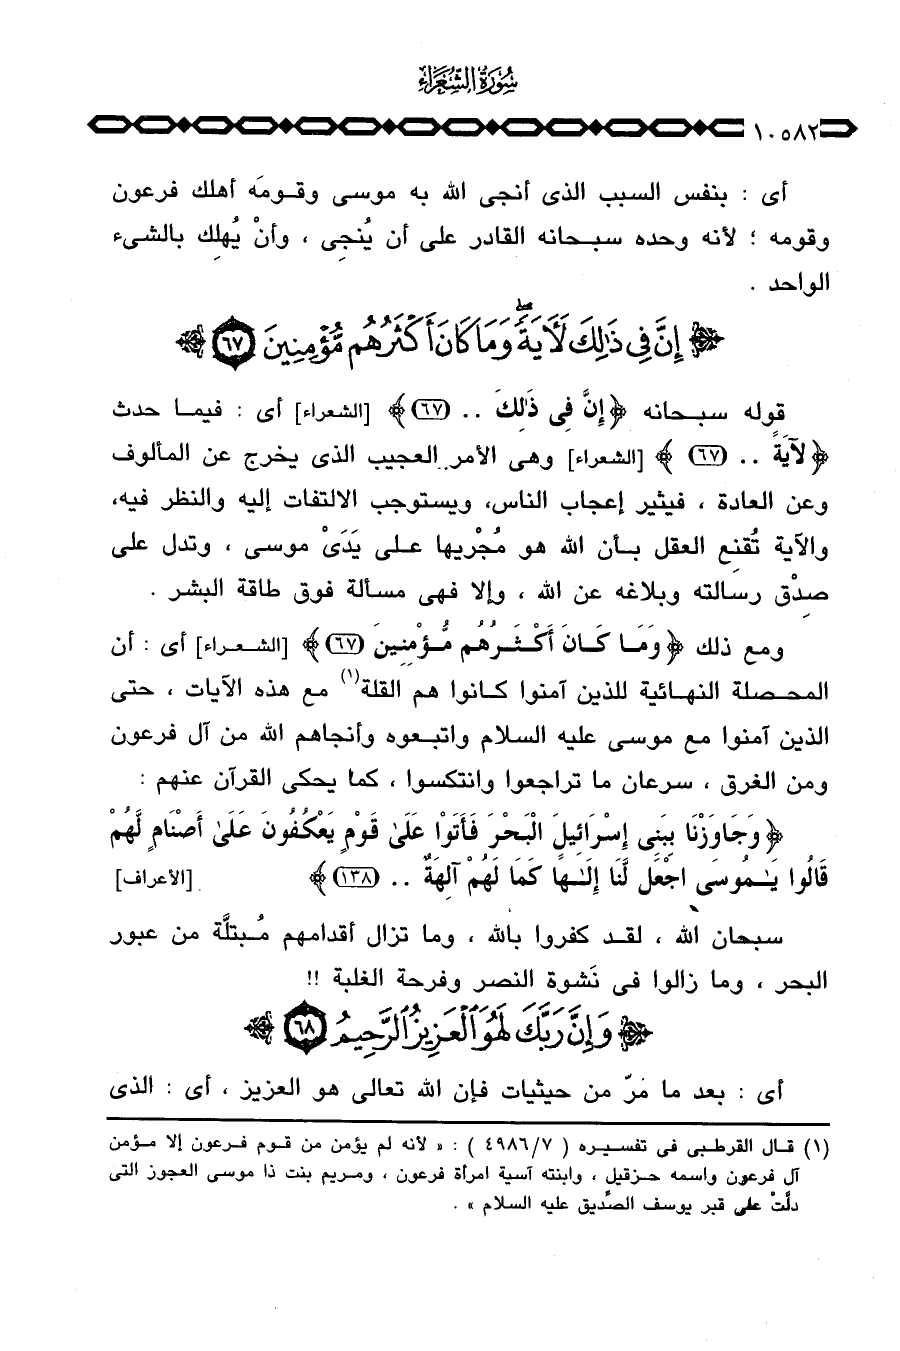 سُورَةُ الشُّعَرَاءِ
١٠٥٨٢
أى : بنفس السبب الذى أنجى الله به موسى وقومَه أهلك فرعون
وقومه ؛ لأنه وحده سبحانه القادر على أن يُنجِى ، وأنْ يُهلِك بالشىء
الواحد .
﴿ إِنَّ فِي ذَٰلِكَ لَآيَةً ۖ وَمَا كَانَ أَكْثَرُهُم مُّؤْمِنِينَ ٦٧ ﴾
قوله سبحانه ﴿ إِنَّ فِى ذَٰلِكَ .. (٦٧) ﴾ [الشعراء] أى : فيما حدث
﴿ لآيَةً .. (٦٧) ﴾ [الشعراء] وهى الأمر العجيب الذى يخرج عن المألوف
وعن العادة ، فيثير إعجاب الناس، ويستوجب الالتفات إليه والنظر فيه،
والآية تُقنِع العقل بأن الله هو مُجْريها على يَدَىْ موسى ، وتدل على
صِدْق رسالته وبلاغه عن الله ، وإلا فهى مسألة فوق طاقة البشر .
ومع ذلك ﴿ وَمَا كَانَ أَكْثَرُهُم مُّؤْمِنِينَ (٦٧) ﴾ [الشعراء] أى : أن
المحصلة النهائية للذين آمنوا كانوا هم القلة(١) مع هذه الآيات ، حتى
الذين آمنوا مع موسى عليه السلام واتبعوه وأنجاهم الله من آل فرعون
ومن الغرق ، سرعان ما تراجعوا وانتكسوا ، كما يحكى القرآن عنهم :
﴿ وَجَاوَزْنَا بِبَنِى إِسْرَائِيلَ الْبَحْرَ فَأَتَوْا عَلَىٰ قَوْمٍ يَعْكُفُونَ عَلَىٰ أَصْنَامٍ لَّهُمْ
قَالُوا يَـٰمُوسَى اجْعَل لَّنَا إِلَـٰهًا كَمَا لَهُمْ آلِهَةٌ .. (١٣٨) ﴾ [الأعراف]
سبحان الله ، لقد كفروا بالله ، وما تزال أقدامهم مُبتلَّة من عبور
البحر ، وما زالوا فى نَشوة النصر وفرحة الغلبة !!
﴿ وَإِنَّ رَبَّكَ لَهُوَ ٱلْعَزِيزُ ٱلرَّحِيمُ ٦٨ ﴾
أى : بعد ما مَرّ من حيثيات فإن الله تعالى هو العزيز ، أى : الذى
(١) قال القرطبى فى تفسيره ( ٧/ ٤٩٨٦ ) : « لأنه لم يؤمن من قوم فرعون إلا مؤمن
آل فرعون واسمه حزقيل ، وابنته آسية امرأة فرعون ، ومريم بنت ذا موسى العجوز التى
دلَّتْ على قبر يوسف الصِّديق عليه السلام » .